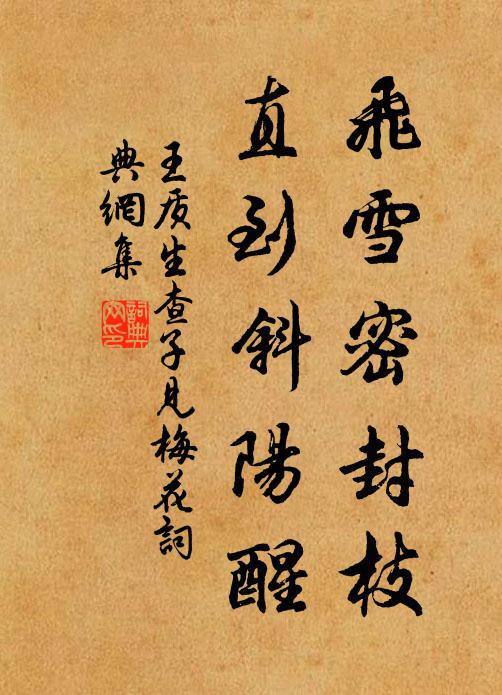 飛雪密封枝
直到斜陽醒
王質生查子見梅花詞
典網集
詞典
网印